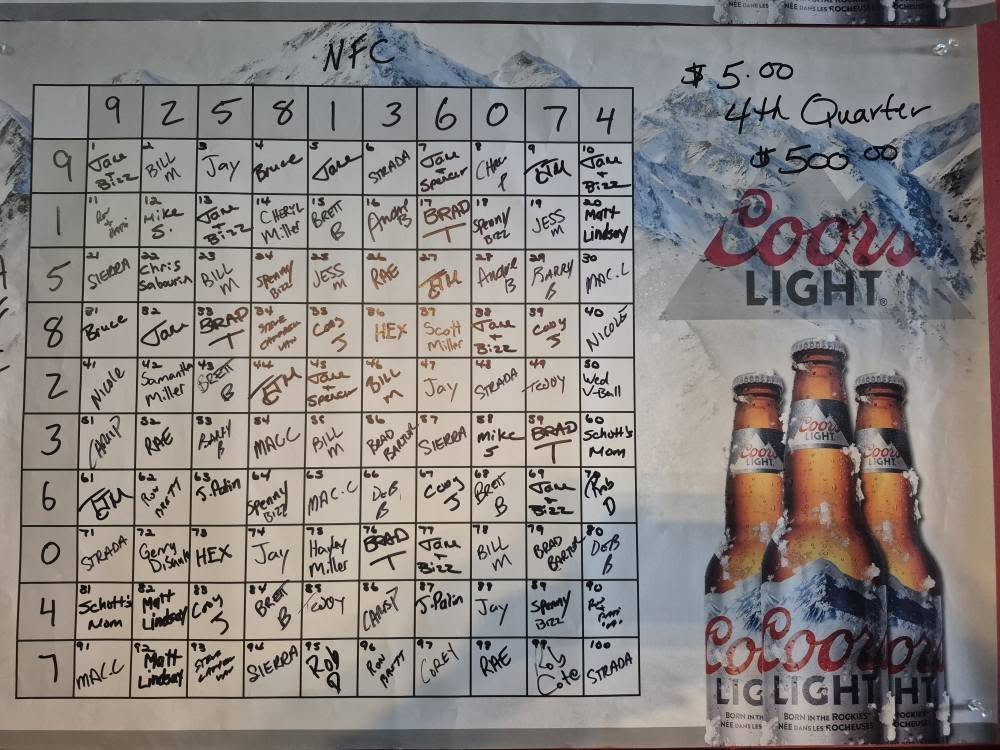 NFC
$ 5.00
4th Quarter
$500 00
9 2 5 8 1 3 6 0 7 4
9 1 Jane + Bizz 2 BILL M 3 Jay 4 Bruce 5 Jane 6 STRADA 7 Jane + Spencer 8 9 10 Jane + Bizz
1 11 12 Mike S. 13 Jane + Bizz 14 CHERYL Miller 15 BRETT B 16 Andre B 17 BRAD T 18 Spenny Bizz 19 JESS M 20 Matt Lindsay
5 21 SIERRA 22 Chris Sabourin 23 BILL M 24 Spenny Bizz 25 JESS M 26 RAE 27 28 Andre B 29 BARRY B 30 MAC.C
8 31 Bruce 32 Jane 33 BRAD T 34 STEVE 35 Cody J 36 HEX 37 Scott Miller 38 Jane + Bizz 39 Cody J 40 NICOLE
2 41 Nicole 42 Samantha Miller 43 BRETT B 44 45 Jane + Spencer 46 BILL M 47 Jay 48 STRADA 49 TEDDY 50 Wed V-Ball
3 51 52 RAE 53 BARRY B 54 MAC.C 55 BILL M 56 BRAD BARTON 57 SIERRA 58 Mike S 59 BRAD T 60 Schott's Mom
6 61 62 63 J. Palin 64 Spenny Bizz 65 MAC.C 66 DEB B 67 Cody J 68 BRETT B 69 Jane + Bizz 70 Rob D
0 71 STRADA 72 Gerry 73 HEX 74 Jay 75 Hayley Miller 76 BRAD T 77 Jane + Bizz 78 BILL M 79 BRAD BARTON 80 DEB B
4 81 Schott's Mom 82 Matt Lindsay 83 Cody J 84 BRETT B 85 TEDDY 86 87 J. Palin 88 Jay 89 Spenny Bizz 90
7 91 MAC.C 92 Matt Lindsay 93 STEVE 94 SIERRA 95 Rob D 96 97 COREY 98 RAE 99 Cote 100 STRADA
Coors
LIGHT
Coors
LIGHT
Coors
LIGHT
Coors
LIGHT
Coors
LIGHT
BORN IN THE ROCKIES
NÉE DANS LES ROCHEUSES